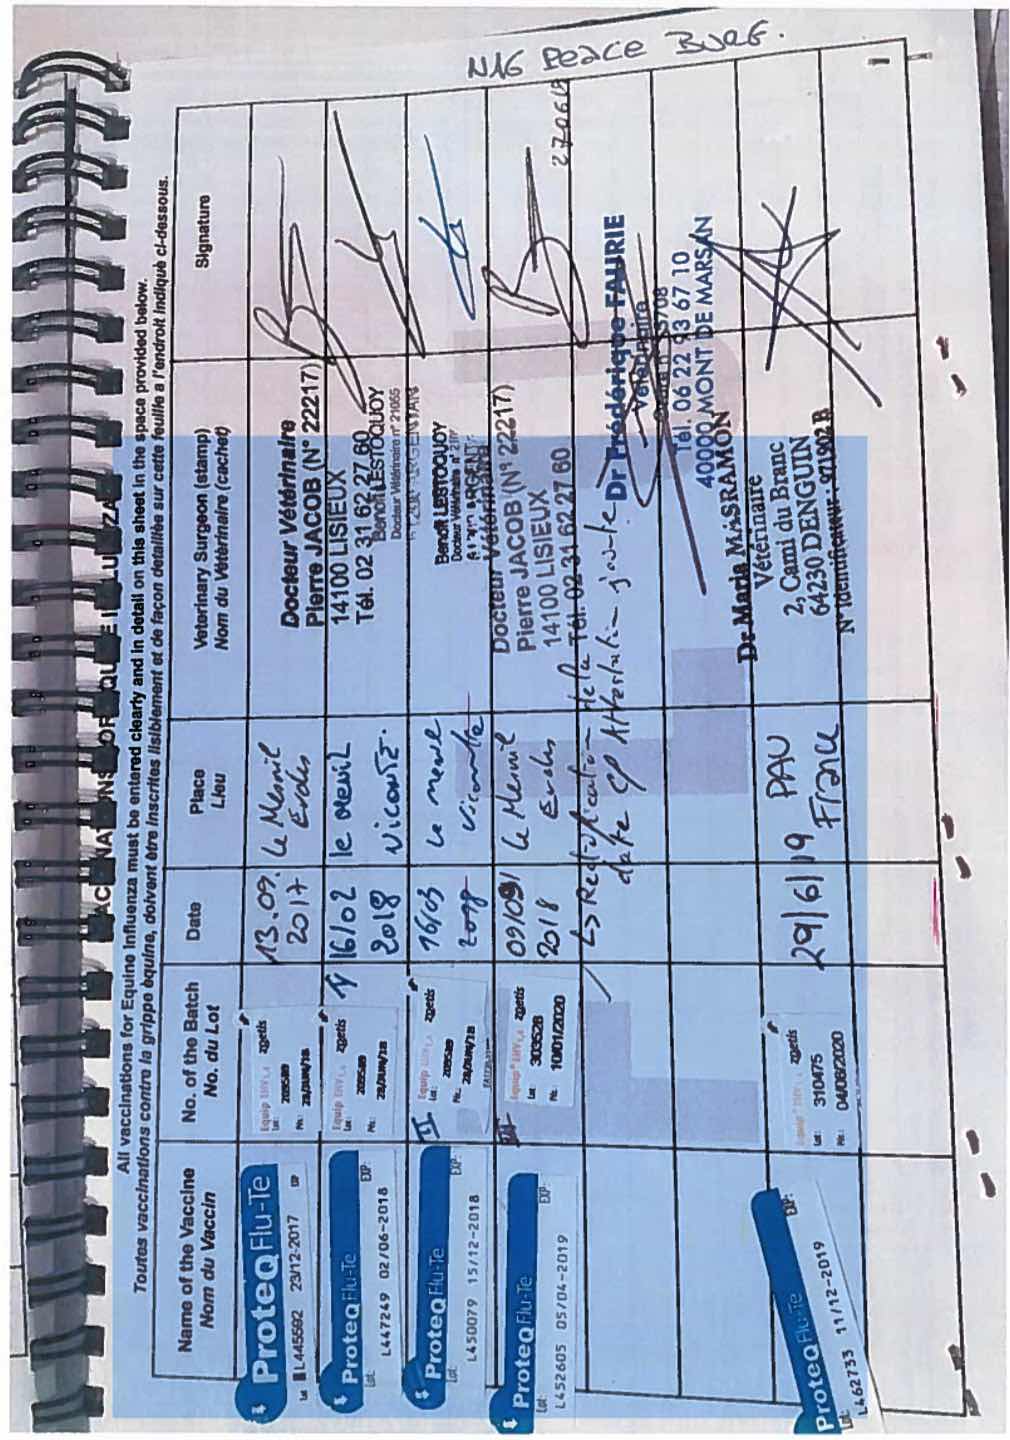 N16 Peace Burg.
VACCINATIONS
All vaccinations for Equine Influenza must be entered clearly and in detail on this sheet in the space provided below.
Toutes vaccinations contre la grippe équine, doivent être inscrites lisiblement et de façon detaillée sur cette feuille a l'endroit indiqué ci-dessous.
Name of the Vaccine
Nom du Vaccin
No. of the Batch
No. du Lot
Date
Place
Lieu
Veterinary Surgeon (stamp)
Nom du Vétérinaire (cachet)
Signature
ProteqFlu-Te
Lot L445592 23/12-2017
Equip EHV1,4 zoetis
Lot:
13.09.
2017
Le Mesnil
Docteur Vétérinaire
Pierre JACOB (N° 22217)
14100 LISIEUX
Tél. 02 31 62 27 60
ProteqFlu-Te
Lot: EXP:
L447249 02/06-2018
I
Equip EHV1,4 zoetis
Lot:
16/02
2018
le Mesnil
Vicomte.
Benoit LESTOQUOY
Docteur Vétérinaire n° 21055
ARGENTAN
ProteqFlu-Te
Lot: EXP:
L450079 15/12-2018
II
Equip EHV1,4 zoetis
Lot:
16/03
Le mesnil
Vicomte
Benoit LESTOQUOY
Docteur Vétérinaire
ProteqFlu-Te
Lot: EXP:
L452605 05/04-2019
III
Equip® EHV1,4 zoetis
Lot: 303528
Pér.: 10/01/2020
09/09/
2018
Le Mesnil
Docteur Vétérinaire
Pierre JACOB (N° 22217)
14100 LISIEUX
Tél. 02 31 62 27 60
↳ Rectification
date cf Attestation jointe
Dr Frédérique FAURIE
Vétérinaire
Tél. 06 22 93 67 10
40000 MONT DE MARSAN
ProteqFlu-Te
Lot: EXP:
L462733 11/12-2019
Equip® EHV1,4 zoetis
Lot: 310475
Pér.: 04/08/2020
29/6/19
PAU
France
Dr Maria MASRAMON
Vétérinaire
2, Cami du Branc
64230 DENGUIN
N° Identificateur : 971902 B